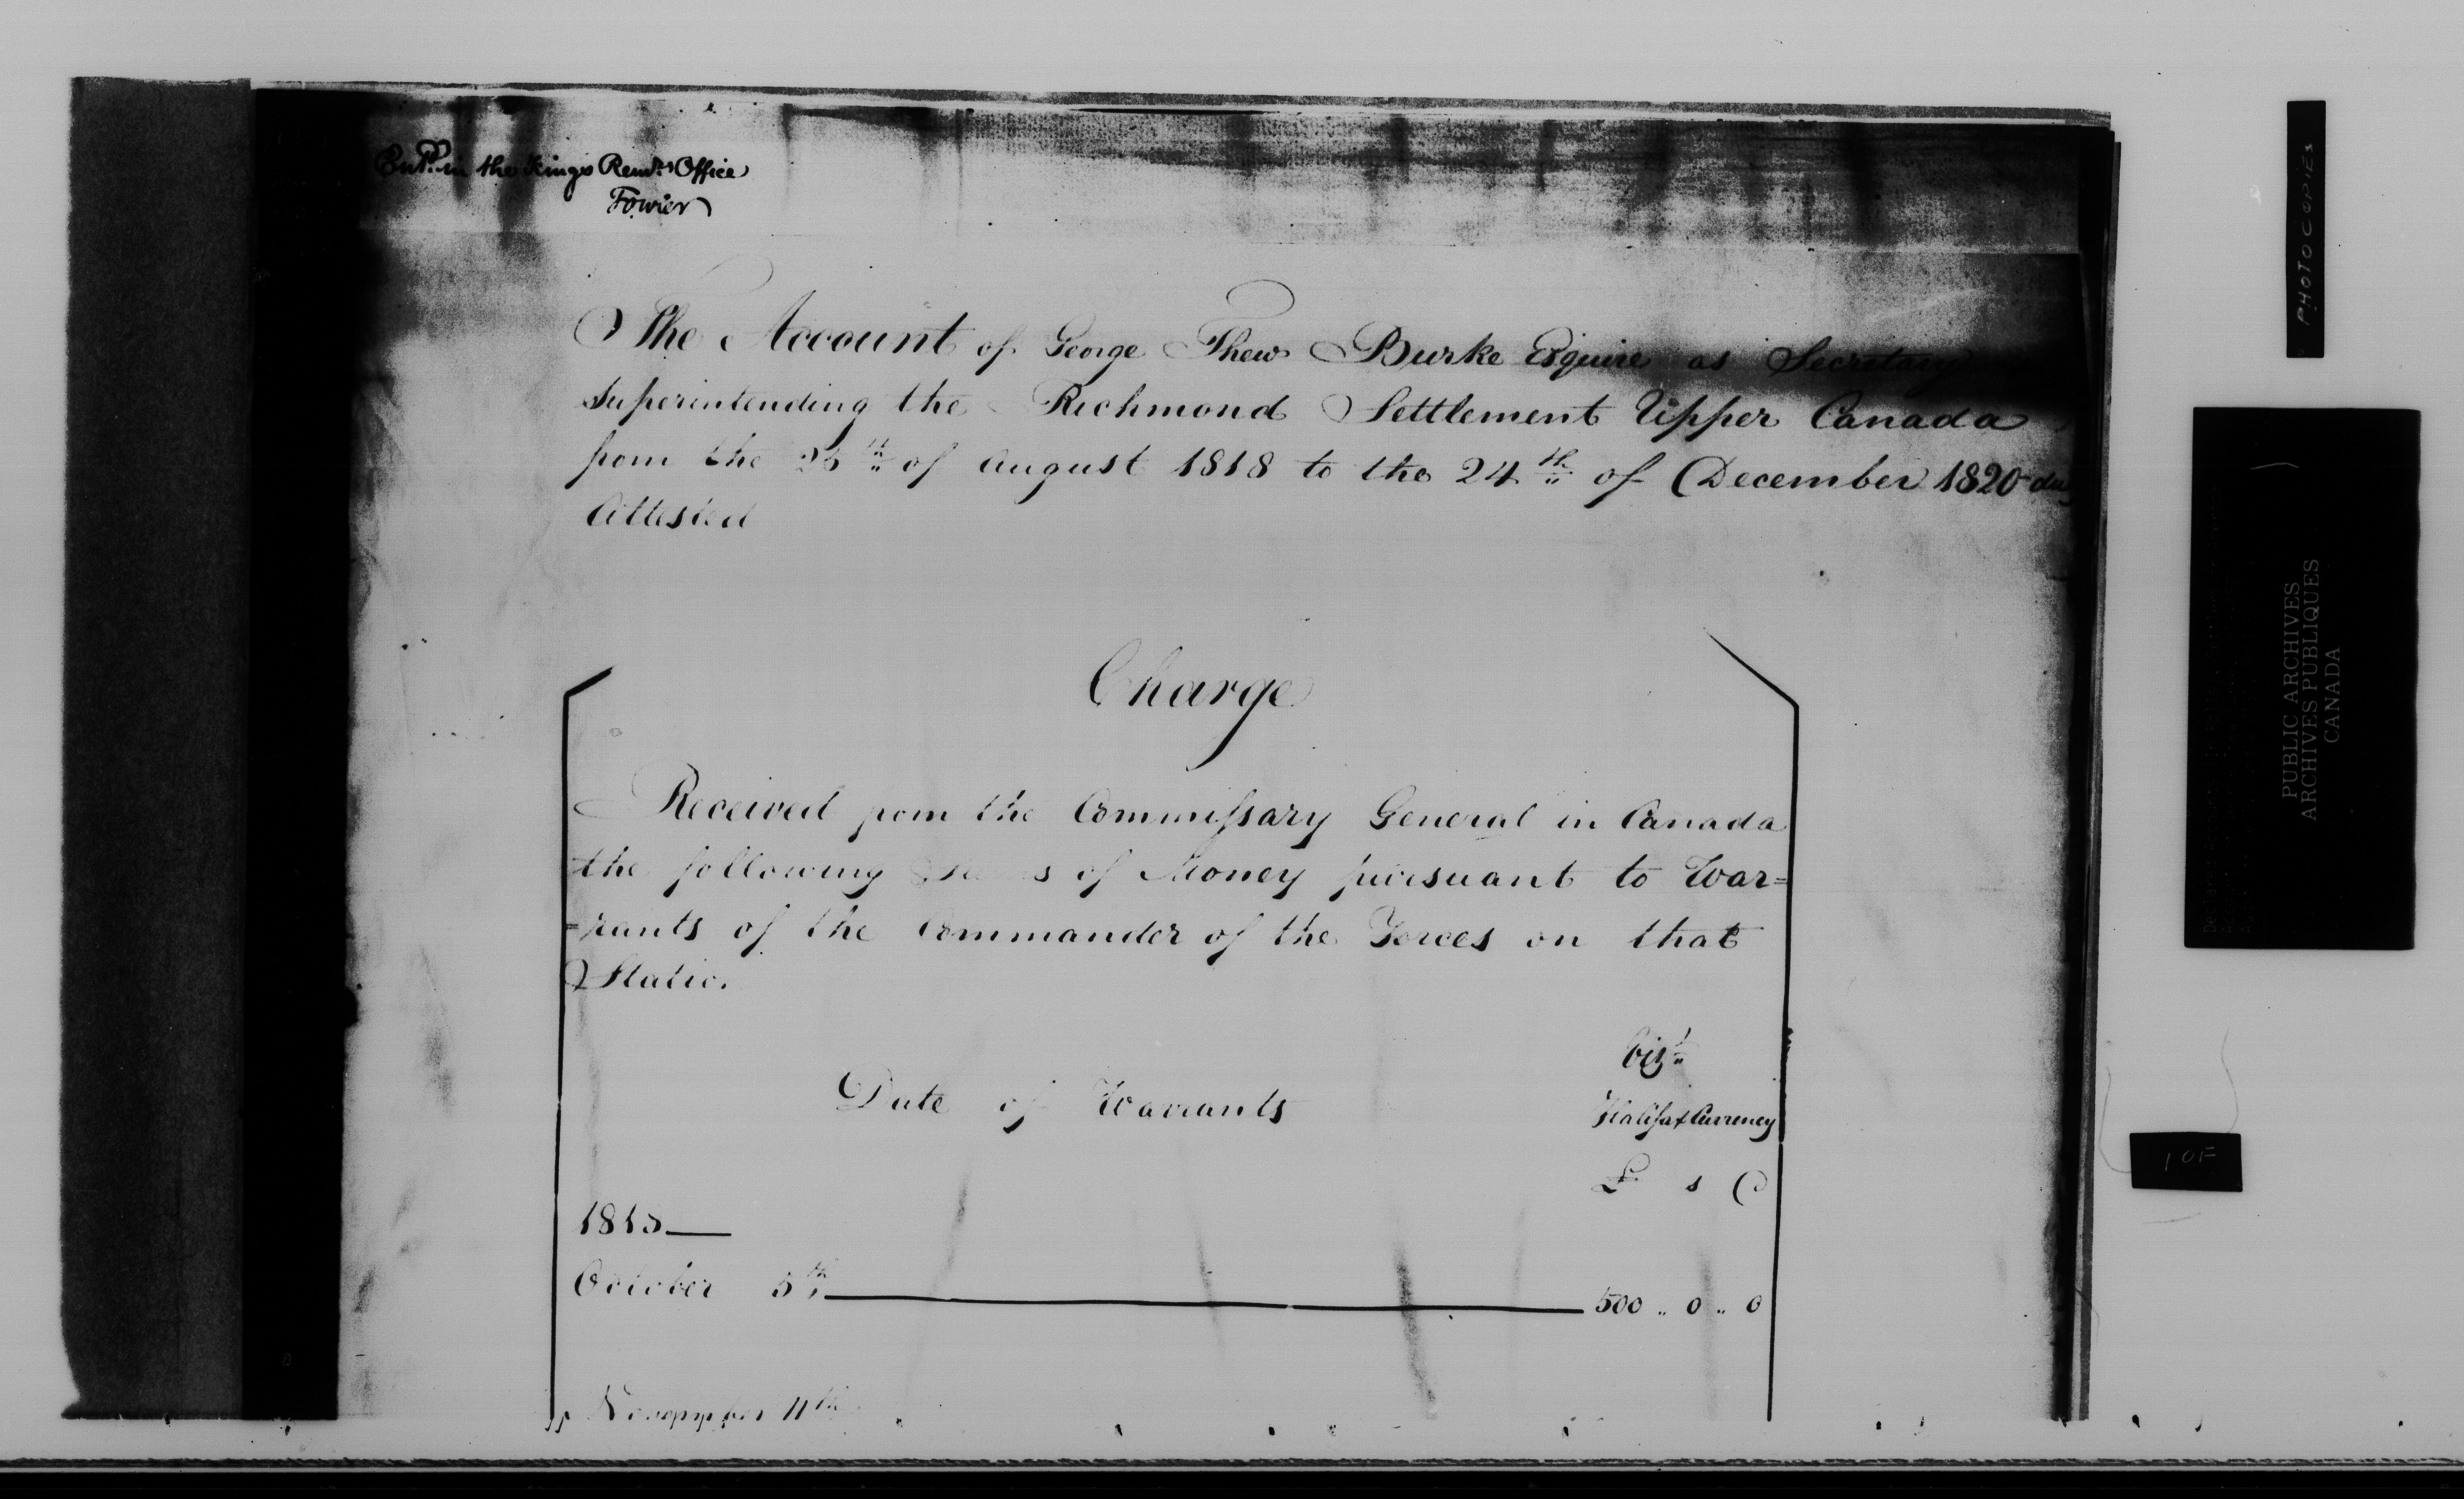 Ent.d in the Kings Rem.rs Office
Fowler
The Account of George Thew Burke Esquire as Secretary
superintending the Richmond Settlement Upper Canada
from the 25th of August 1818 to the 24th of December 1820 duly
Attested
Charge
Received from the Commissary General in Canada
the following Sums of Money pursuant to War=
=rants of the Commander of the Forces on that
Station
Date of Warrants
Viz.t
Halifax Currency
£ s d
1818
October 5th 500 .. 0 .. 0
November 11th
PHOTOCOPIES
PUBLIC ARCHIVES
ARCHIVES PUBLIQUES
CANADA
1 OF